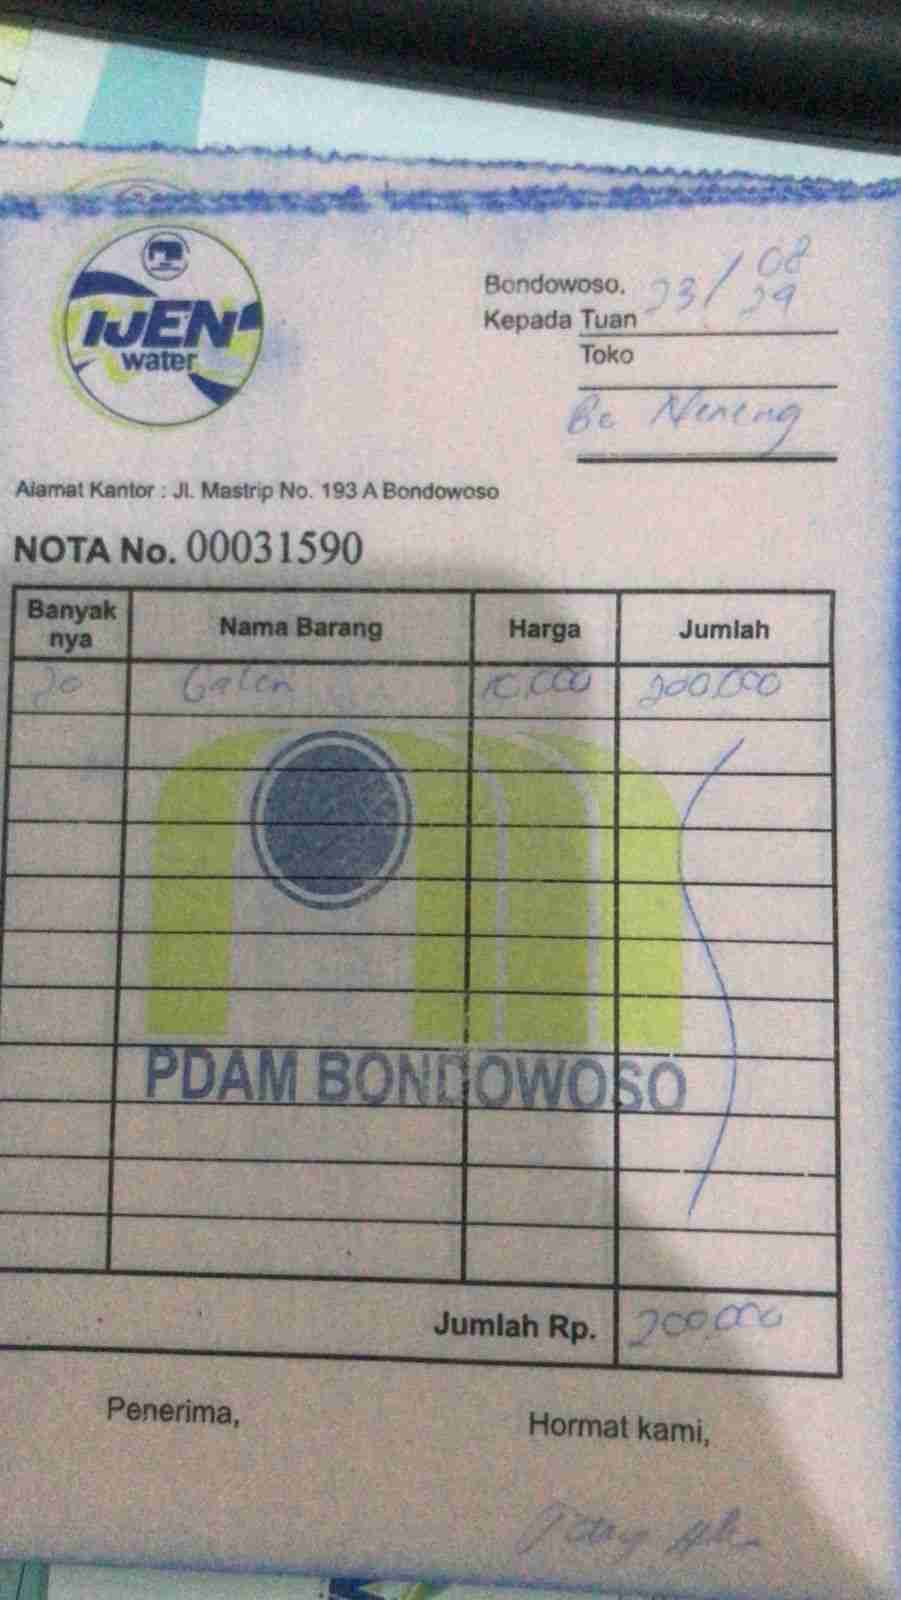 IJEN
water
Bondowoso, 23/08
Kepada Tuan
Toko
Neneng
Alamat Kantor : Jl. Mastrip No. 193 A Bondowoso
NOTA No. 00031590
Banyak nya Nama Barang Harga Jumlah
20 Galon 10,000 200,000
PDAM BONDOWOSO
Jumlah Rp. 200,000
Penerima,
Hormat kami,